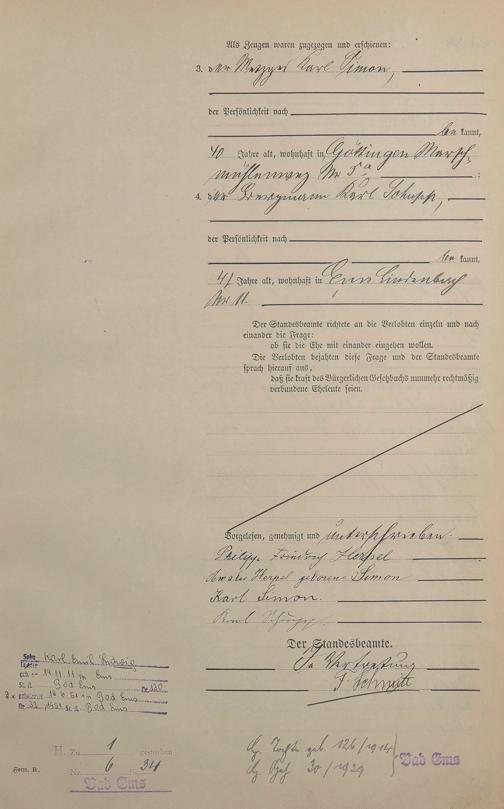 Als Zeugen waren zugezogen und erschienen:
3. der Metzger Karl Simon,
der Persönlichkeit nach
be kannt,
40 Jahre alt, wohnhaft in Göttingen Marsch-
mühlenweg Nr 5a ;
4. der Bergmann Karl
der Persönlichkeit nach
be kannt,
41 Jahre alt, wohnhaft in Ems Lindenbach
Nr 11.
Der Standesbeamte richtete an die Verlobten einzeln und nach
einander die Frage:
ob sie die Ehe mit einander eingehen wollen.
Die Verlobten bejahten diese Frage und der Standesbeamte
sprach hierauf aus,
daß sie kraft des Bürgerlichen Gesetzbuchs nunmehr rechtmäßig
verbundene Eheleute seien.
Vorgelesen, genehmigt und unterschrieben.
Philipp Friedrich Herpel
Amalie Herpel geborene Simon
Karl Simon.
Karl
Der Standesbeamte.
In Vertretung
Schmitt
Sohn Karl Emil Ludwig
geb. 14.11.11 in Ems
St. A. Bad Ems Nr. 120
2. x in Bad Ems
Nr. St. A. Bad Ems
H. Zu 1 gestorben
Nr. 6 34
Bad Ems
Form. B.
Hg. Tochter geb 126/1914
Hg. 30/1939
Bad Ems